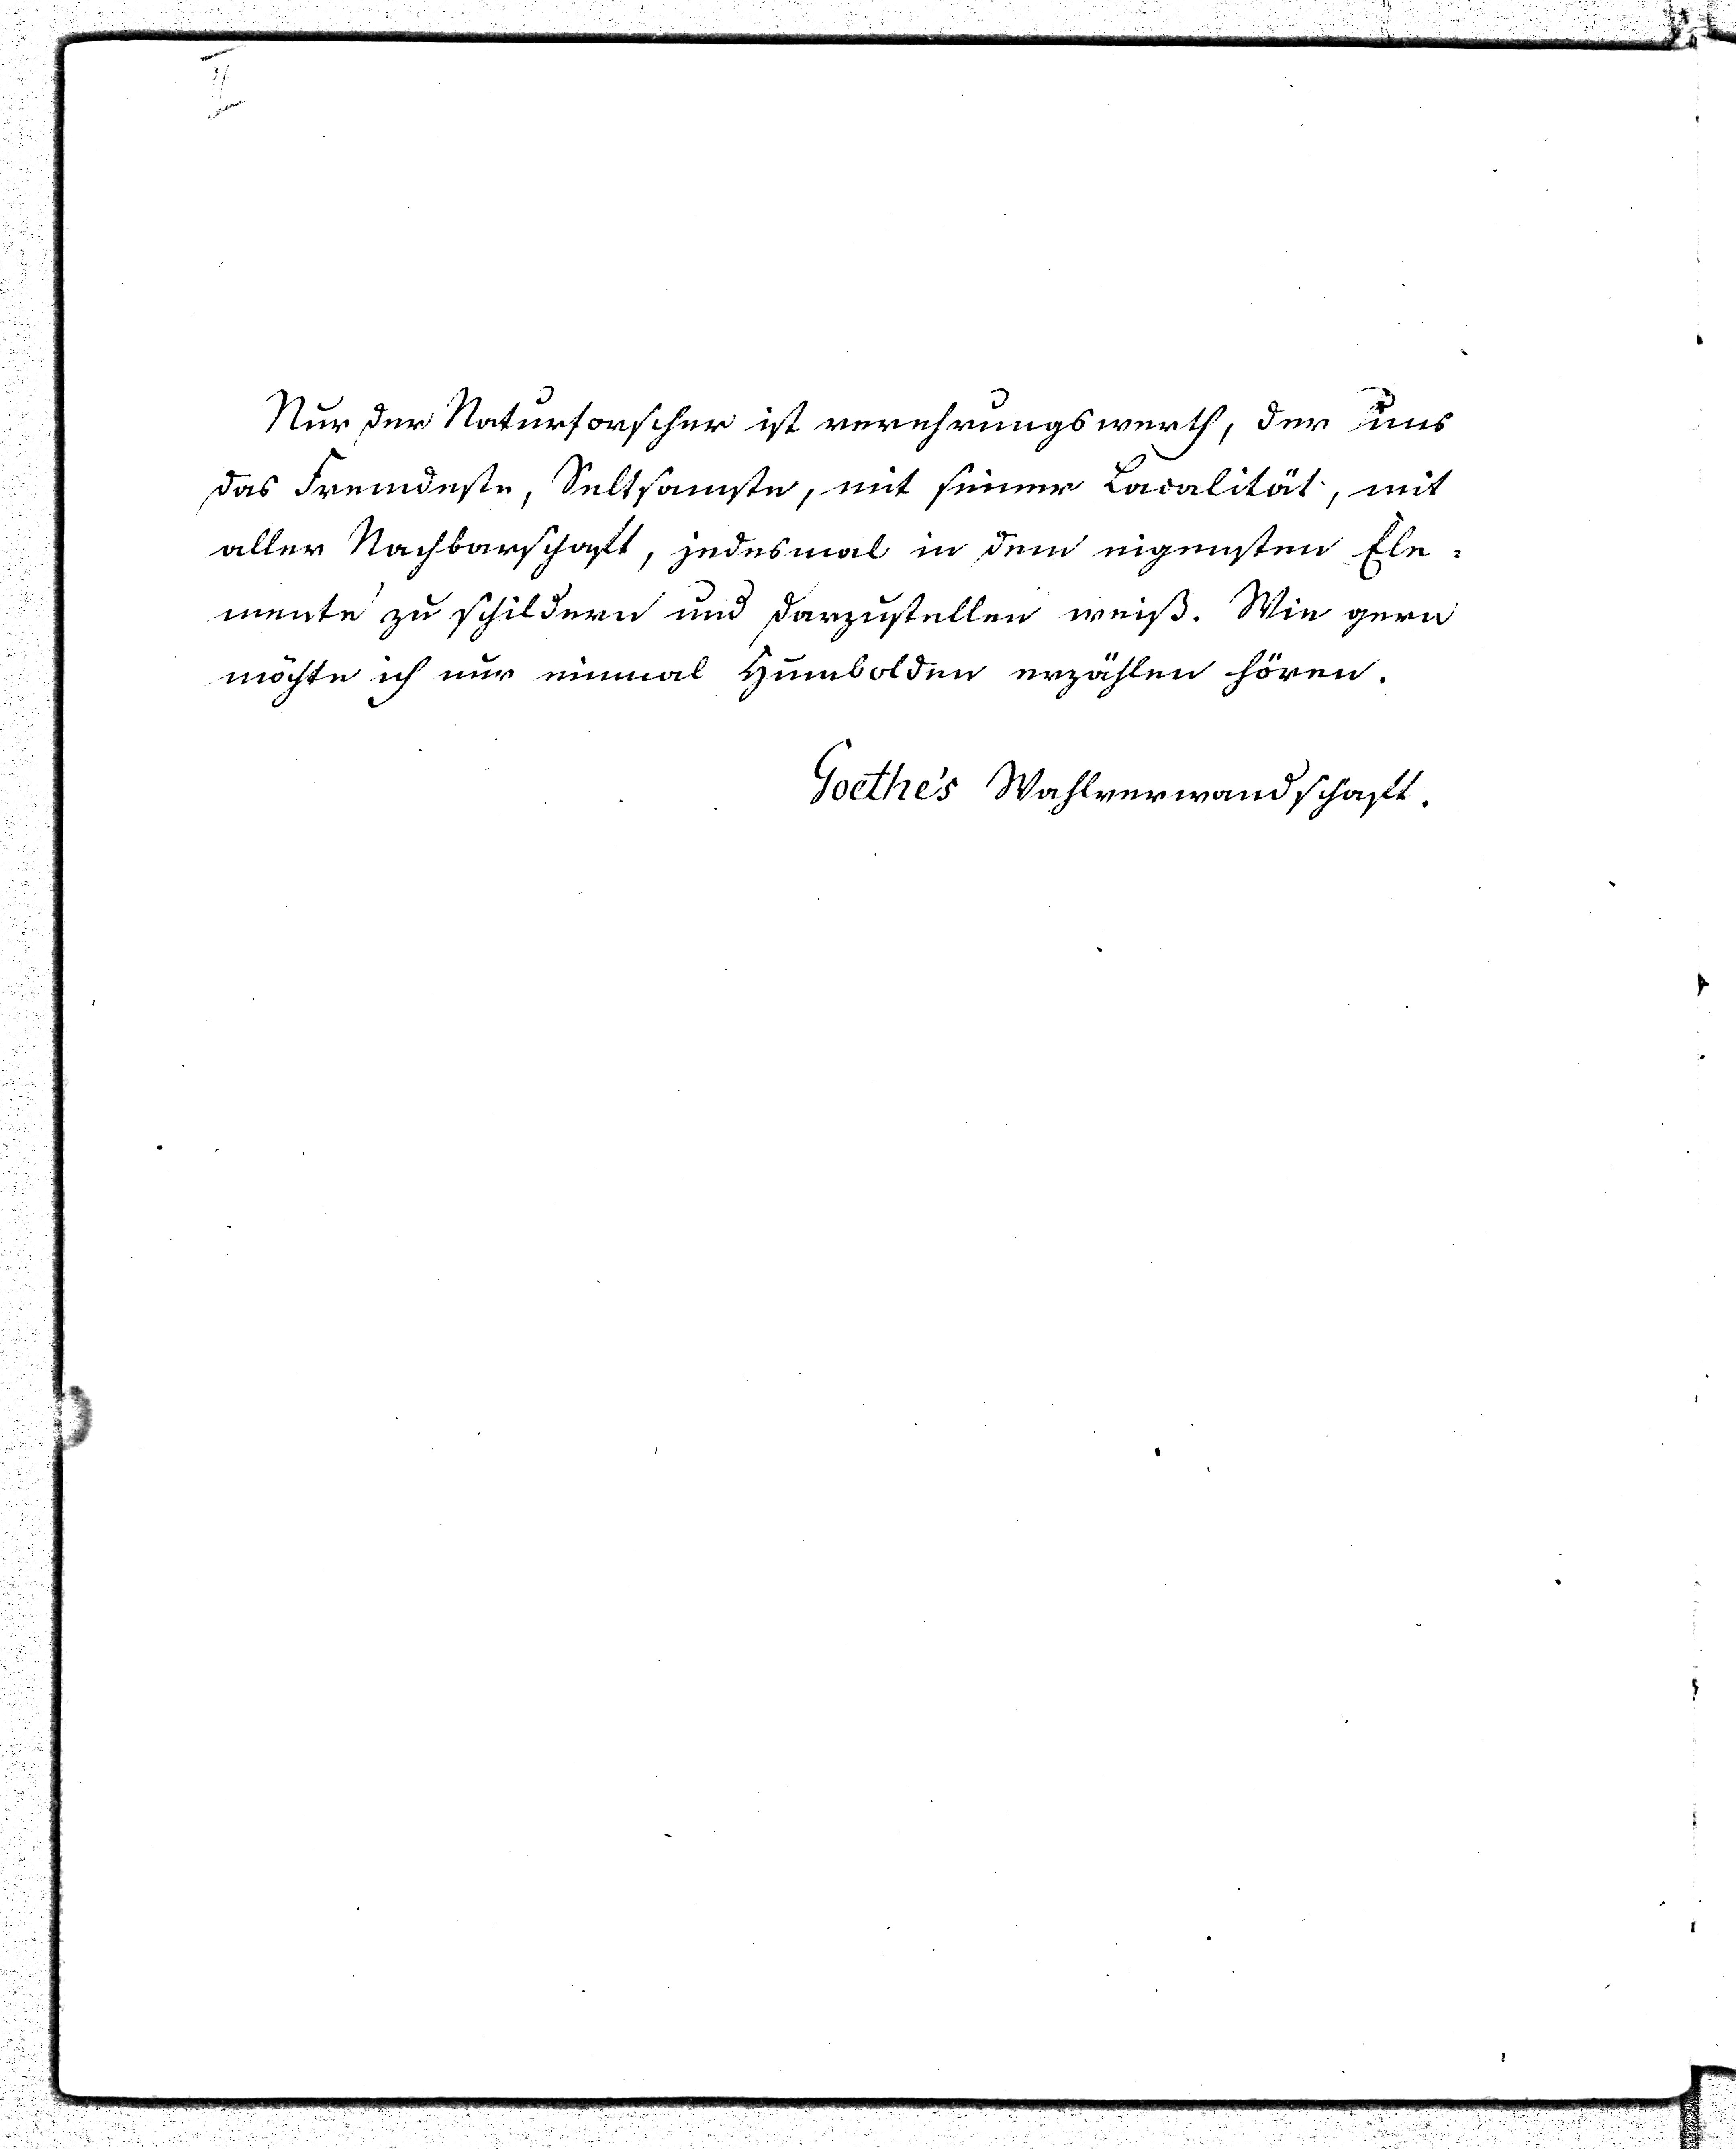 I
Nur der Naturforscher ist verehrungswerth, der uns
das Fremdeste, Seltsamste, mit seiner Localität, mit
aller Nachbarschaft, jedesmal in dem eigensten Ele-
mente zu schildern und darzustellen weiß. Wie gern
möchte ich nur einmal Humbolden erzählen hören.
Goethe's Wahlverwandschaft.